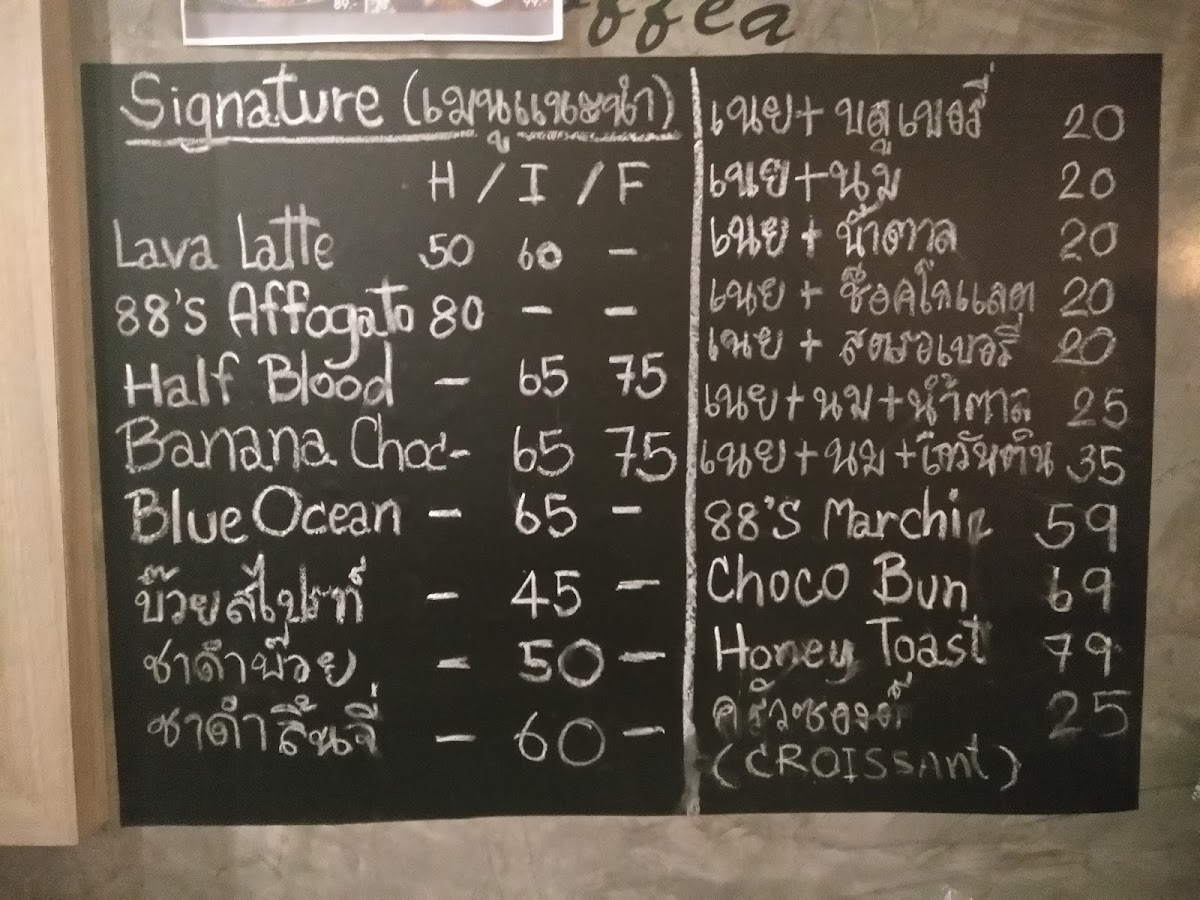 89.-
99.-
offea
Signature (เมนูแนะนำ)
H / I / F
Lava Latte 50 60 -
88's Affogato 80 - -
Half Blood - 65 75
Banana Choc - 65 75
Blue Ocean - 65 -
บ๊วยสไปรท์ - 45 -
ชาดำบ๊วย - 50 -
ชาดำลิ้นจี่ - 60 -
เนย + บลูเบอรี่ 20
เนย + นม 20
เนย + น้ำตาล 20
เนย + ช็อคโกแลต 20
เนย + สตรอเบอรี่ 20
เนย + นม + น้ำตาล 25
เนย + นม + โอวันติน 35
88's Marchin 59
Choco Bun 69
Honey Toast 79
ครัวซองต์ 25
(CROISSAnt)